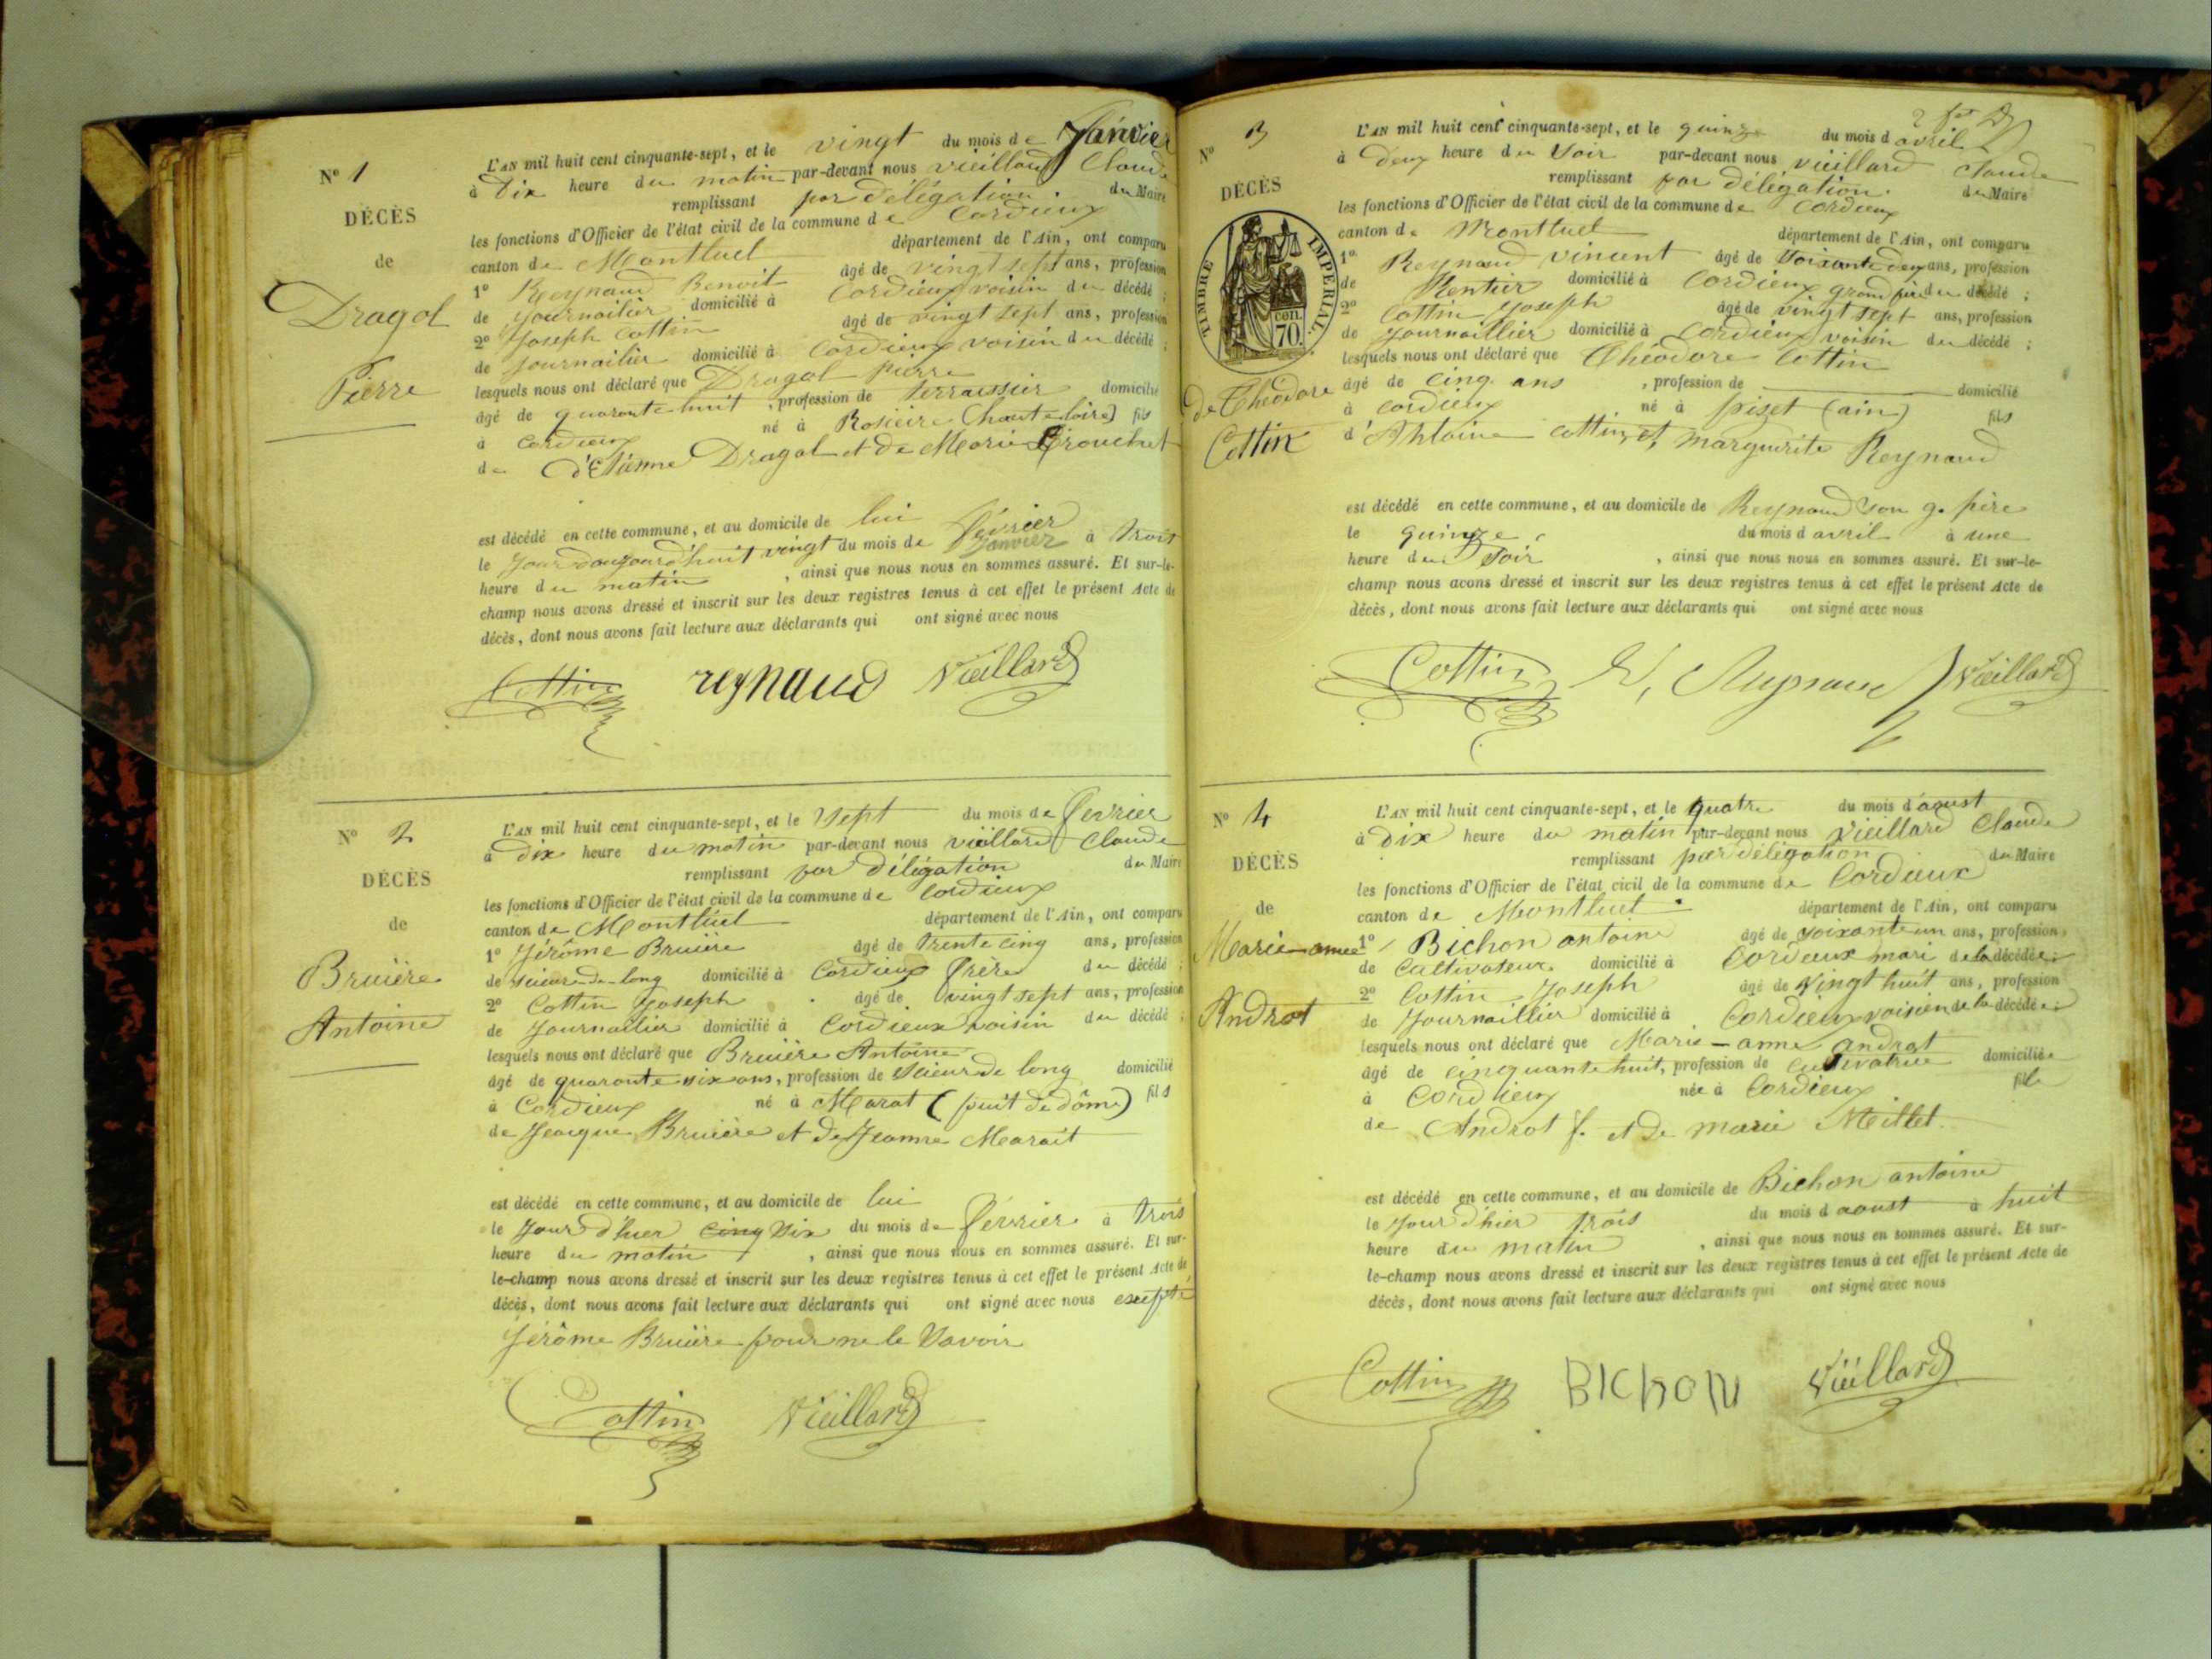 N° 1
DÉCÈS
de
Dragol
Pierre
L'AN mil huit cent cinquante-sept, et le vingt du mois de Janvier
à Dix heure du matin par-devant nous vieillard Claude
remplissant par Délégation du Maire
les fonctions d'Officier de l'état civil de la commune de Cordieux
canton de Montluel département de l'Ain, ont comparu
1° Reynaud Benoit âgé de vingt sept ans, profession
de journailier domicilié à Cordieux voisin du décédé ;
2° Joseph Cottin âgé de vingt sept ans, profession
de journailier domicilié à Cordieux voisin du décédé ;
lesquels nous ont déclaré que Dragol pierre
âgé de quarante huit, profession de terrassier domicilié
à Cordieux né à Rosieire (haute loire) fils
de d'Etienne Dragol et de Marie
est décédé en cette commune, et au domicile de lui
février
le Jour daujourd'huit vingt du mois de Janvier à trois
heure du matin, ainsi que nous nous en sommes assuré. Et sur-le-
champ nous avons dressé et inscrit sur les deux registres tenus à cet effet le présent Acte de
décès, dont nous avons fait lecture aux déclarants qui ont signé avec nous
Cottin reynaud Vieillard
N° 2
DÉCÈS
de
Bruière
Antoine
L'AN mil huit cent cinquante-sept, et le Sept du mois de fevrier
à dix heure du matin par-devant nous vieillard Claude
remplissant par Délégation du Maire
les fonctions d'Officier de l'état civil de la commune de Cordieux
canton de Montluel département de l'Ain, ont comparu
1° Jérôme Bruière âgé de trente cinq ans, profession
de scieur-de-long domicilié à Cordieux frère du décédé ;
2° Cottin Joseph âgé de vingt sept ans, profession
de Journallier domicilié à Cordieux voisin du décédé ;
lesquels nous ont déclaré que Bruière Antoine
âgé de quarante six ans, profession de Scieur de long domicilié
à Cordieux né à Marat (puit de dôme) fils
de Jacque Bruière et de Jeanne Marait
est décédé en cette commune, et au domicile de lui
le Jour d'hier cinq Six du mois de février à trois
heure du matin, ainsi que nous nous en sommes assuré. Et sur-
le-champ nous avons dressé et inscrit sur les deux registres tenus à cet effet le présent Acte de
décès, dont nous avons fait lecture aux déclarants qui ont signé avec nous excepté
Jérôme Bruière pour ne le Savoir
Cottin Vieillard
N° 3
DÉCÈS
TIMBRE IMPERIAL.
CEN. 70.
de Théodore
Cottin
L'AN mil huit cent cinquante-sept, et le quinze du mois d avril
à deux heure du Soir par-devant nous vieillard claude
remplissant par délégation. du Maire
les fonctions d'Officier de l'état civil de la commune de Cordieux
canton de Montluel département de l'Ain, ont comparu
1° Reynaud vincent âgé de Soixante deux ans, profession
de Rentier domicilié à Cordieux grand père du décédé ;
2° Cottin Joseph âgé de vingt sept ans, profession
de Journaillier domicilié à Cordieux voisin du décédé ;
lesquels nous ont déclaré que Théodore Cottin
âgé de Cinq ans, profession de domicilié
à Cordieux né à pizet (ain) fils
d'Antoine Cottin et Marguerite Reynaud
est décédé en cette commune, et au domicile de Reynaud son g. père
le quinze du mois d avril à une
heure du Soir, ainsi que nous nous en sommes assuré. Et sur-le-
champ nous avons dressé et inscrit sur les deux registres tenus à cet effet le présent Acte de
décès, dont nous avons fait lecture aux déclarants qui ont signé avec nous
Cottin Reynaud Vieillard
N° 4
DÉCÈS
de
Marie-anne
Androt
L'AN mil huit cent cinquante-sept, et le quatre du mois d'aoust
à dix heure du matin par-devant nous Vieillard Claude
remplissant par délégation du Maire
les fonctions d'Officier de l'état civil de la commune de Cordieux
canton de Montluel département de l'Ain, ont comparu
1° Bichon antoine âgé de soixante un ans, profession
de Cultivateur domicilié à Cordieux mari de la décédée ;
2° Cottin Joseph âgé de Vingt huit ans, profession
de Journaillier domicilié à Cordieux voisien de la décédée ;
lesquels nous ont déclaré que Marie-anne androt
âgé de cinquante huit, profession de cultivatrice domiciliée
à Cordieux née à Cordieux fille
de Androt f. et de marie Meillet
est décédé en cette commune, et au domicile de Bichon antoine
le Jour d'hier trois du mois d aoust à huit
heure du matin, ainsi que nous nous en sommes assuré. Et sur-
le-champ nous avons dressé et inscrit sur les deux registres tenus à cet effet le présent Acte de
décès, dont nous avons fait lecture aux déclarants qui ont signé avec nous
Cottin BICHON Vieillard